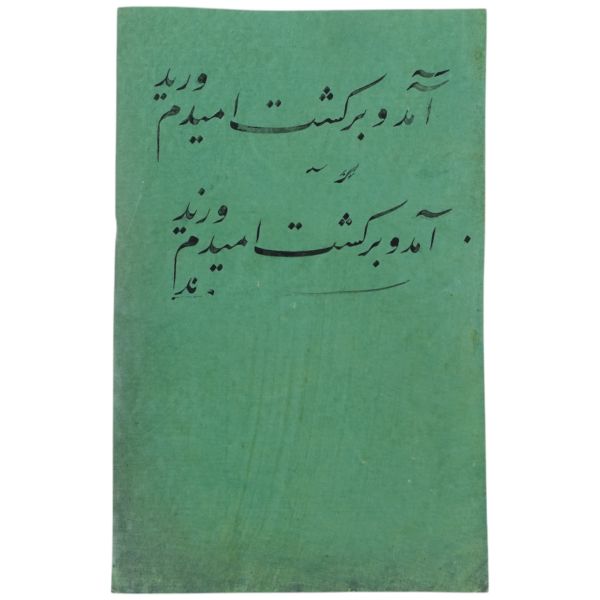 آمد و برگشت امیدم ورید
آمد و برگشت امیدم ورند
ند